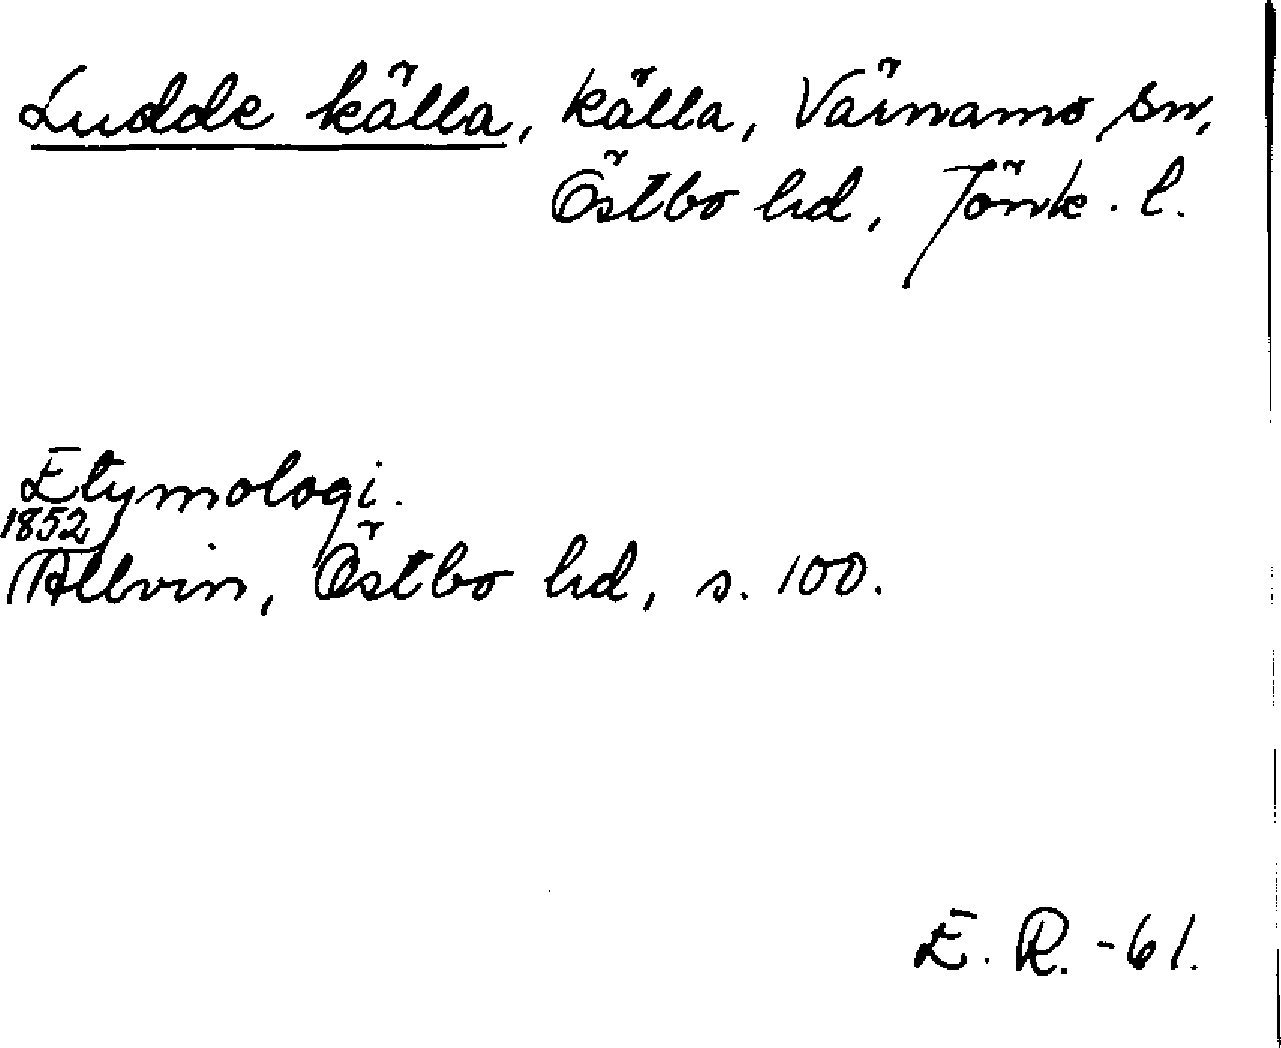 Ludde källa, källa, Värnamo sn,
Östbo hd, Jönk. l.
Etymologi.
1852
Allvin, Östbo hd, s. 100.
E. R. -61.